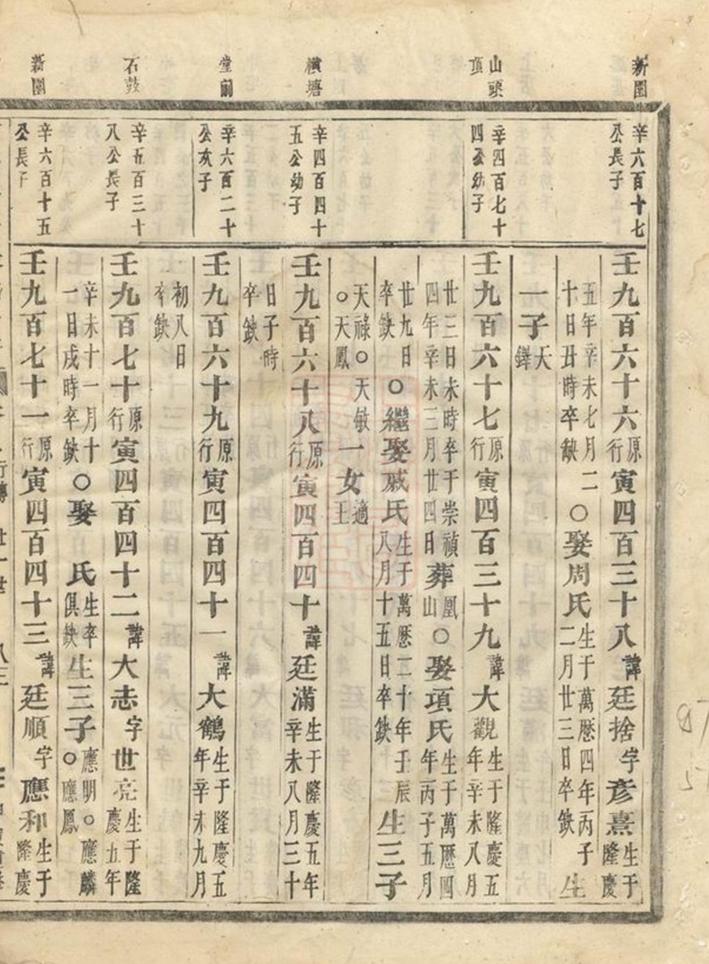 新園
辛六百十七
公長子
壬九百六十六原行寅四百三十八諱廷捨字彥熹生于隆慶
五年辛未七月二十日丑時卒缺○娶周氏生于萬曆四年丙子二月廿三日卒缺生
一子天鐸
山頭頂
辛四百七十
四公幼子
壬九百六十七原行寅四百三十九諱大觀生于隆慶五年辛未八月
廿三日未時卒于崇禎四年辛未三月廿四日葬鳳山○娶項氏生于萬曆四年丙子五月
廿九日卒缺○繼娶戚氏生于萬曆二十年壬辰八月十五日卒缺生三子
天祿○天敏○天鳳一女適王
橫塘
辛四百四十
五公幼子
壬九百六十八原行寅四百四十諱廷滿生于隆慶五年辛未八月三十
日子時卒缺
堂前
辛六百二十
公次子
壬九百六十九原行寅四百四十一諱大鶴生于隆慶五年辛未九月
初八日卒缺
石鼓
辛五百三十
八公長子
壬九百七十原行寅四百四十二諱大志字世亮生于隆慶五年
辛未十一月十一日戌時卒缺○娶 氏生卒俱缺生三子應明○應麟○應鳳
新園
辛六百十五
公長子
壬九百七十一原行寅四百四十三諱廷順字應和生于隆慶
行傳 廿一世 八三